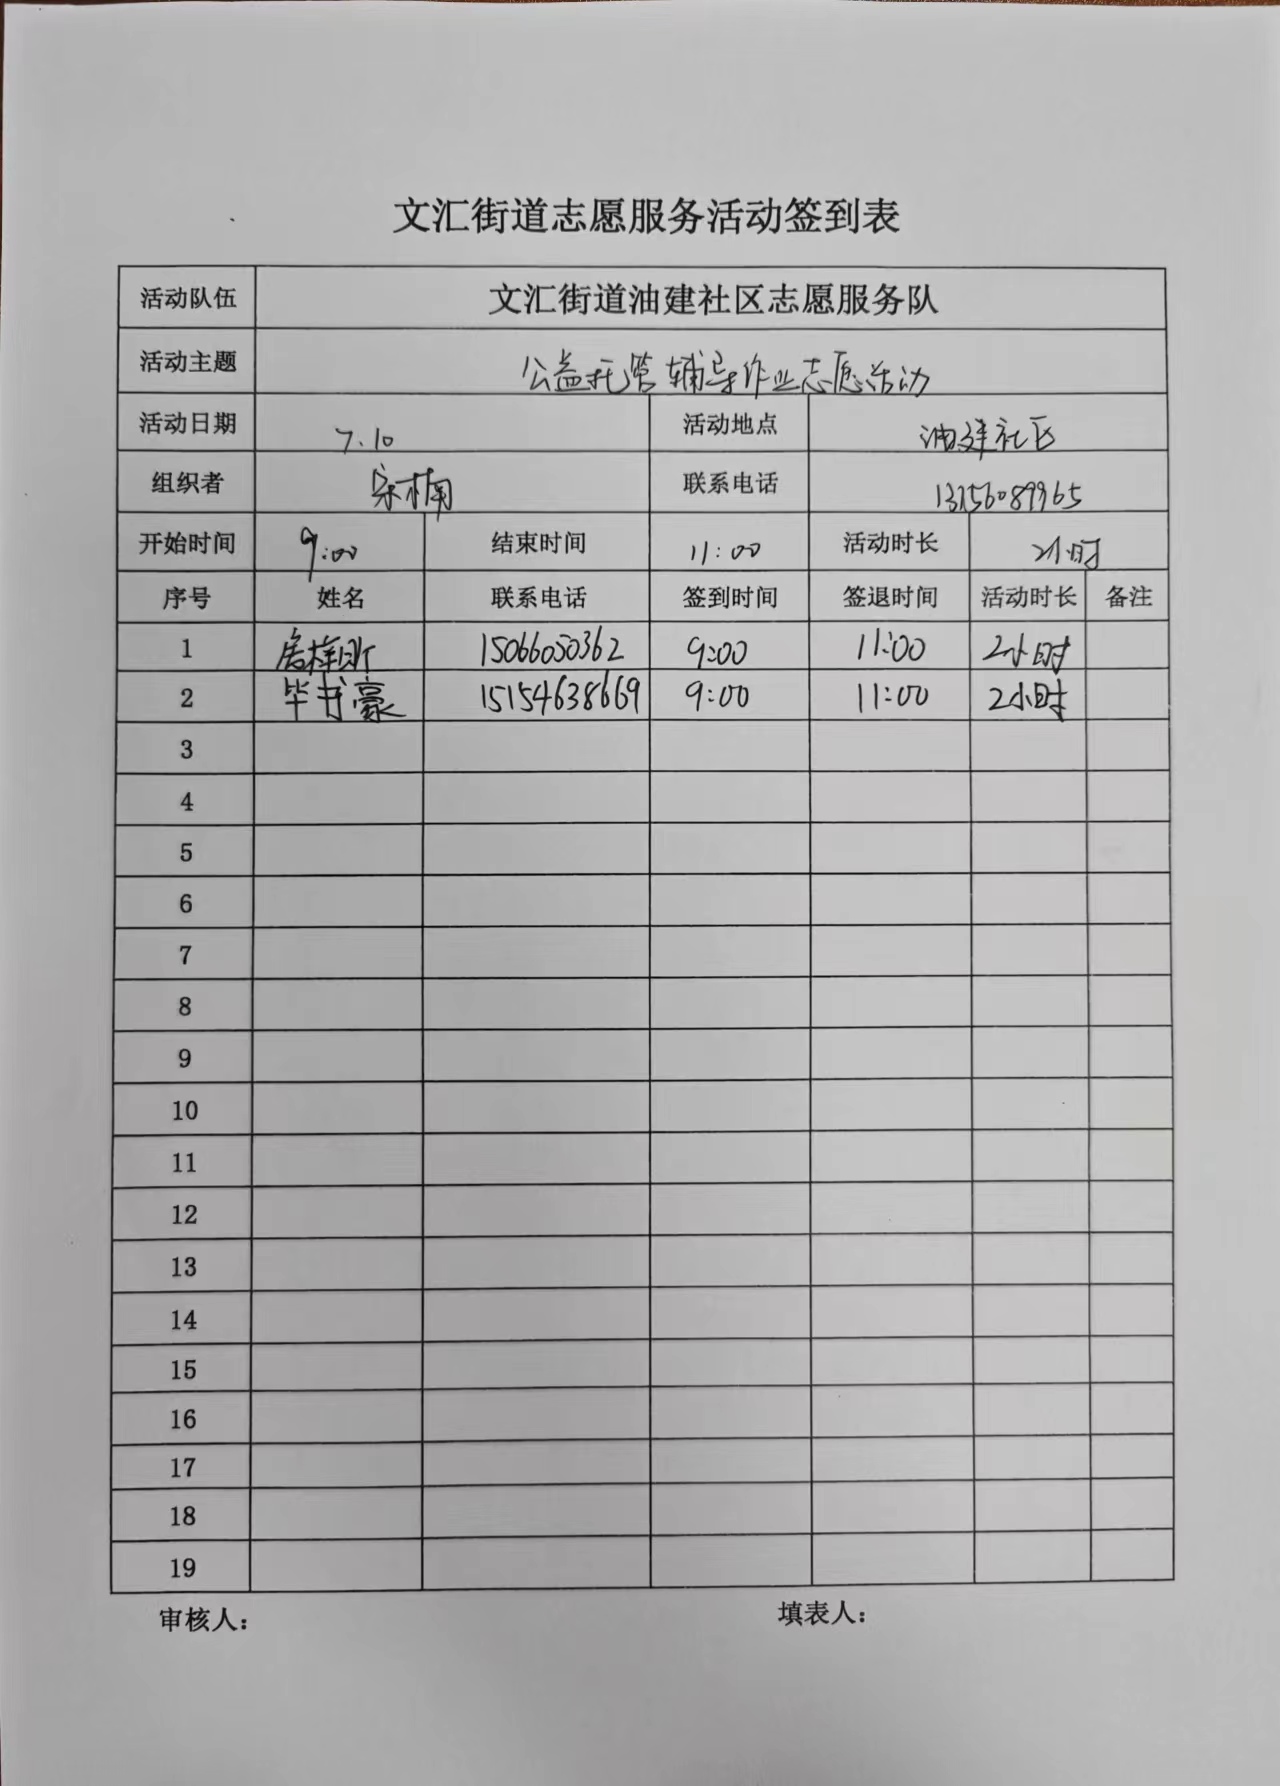 文汇街道志愿服务活动签到表
活动队伍 文汇街道油建社区志愿服务队
活动主题 公益托管辅导作业志愿活动
活动日期 7.10 活动地点 油建社区
组织者 宋楠 联系电话 13756089965
开始时间 9:00 结束时间 11:00 活动时长 2小时
序号 姓名 联系电话 签到时间 签退时间 活动时长 备注
1 15066050362 9:00 11:00 2小时
2 毕书豪 15154638669 9:00 11:00 2小时
3
4
5
6
7
8
9
10
11
12
13
14
15
16
17
18
19
审核人： 填表人：